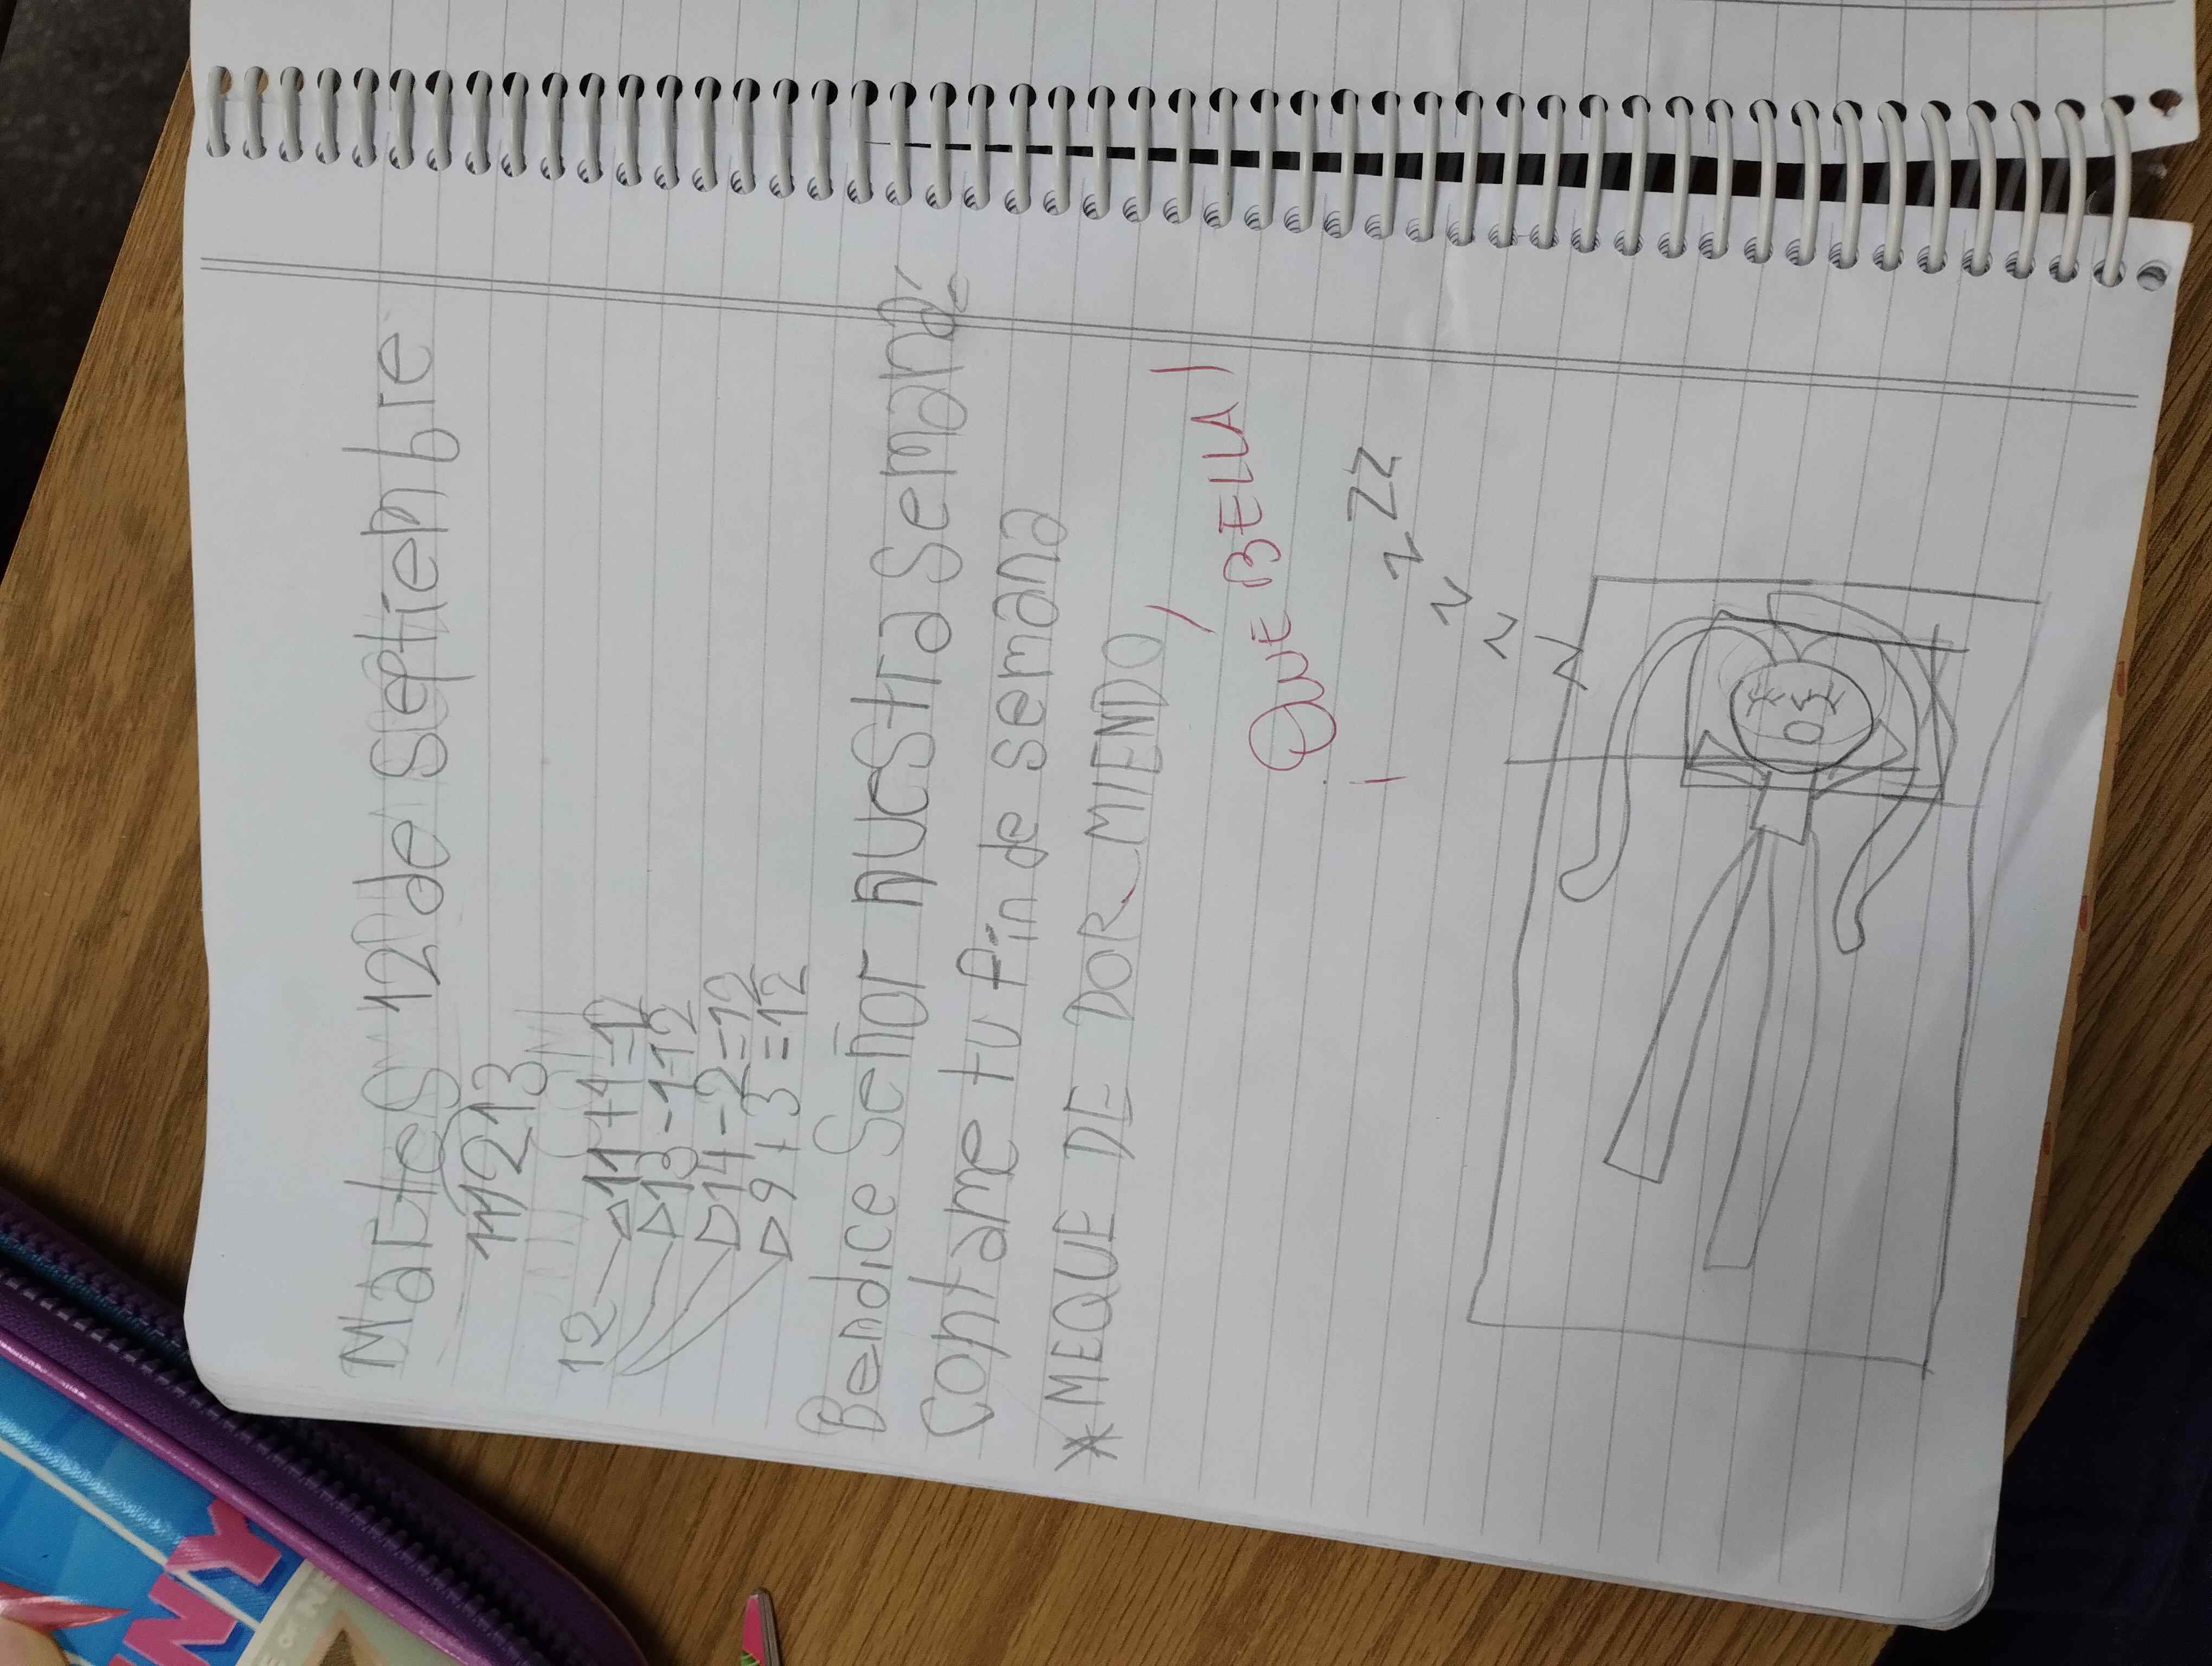 Martes 12 de septiembre
11 12 13
12 11+1=12
13-1=12
14-2=12
9+3=12
Bendice Señor nuestra semana
Contame tu fin de semana
*MEQUE DE DOR MIENDO
¡QUÉ BELLA!
ZZ
Z
Z
Z
Z
NNY